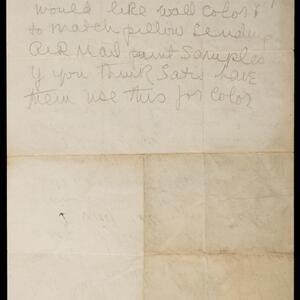 would like wall color
to match pillow sending
Air Mail paint samples
if you think Satis have
them use this for color